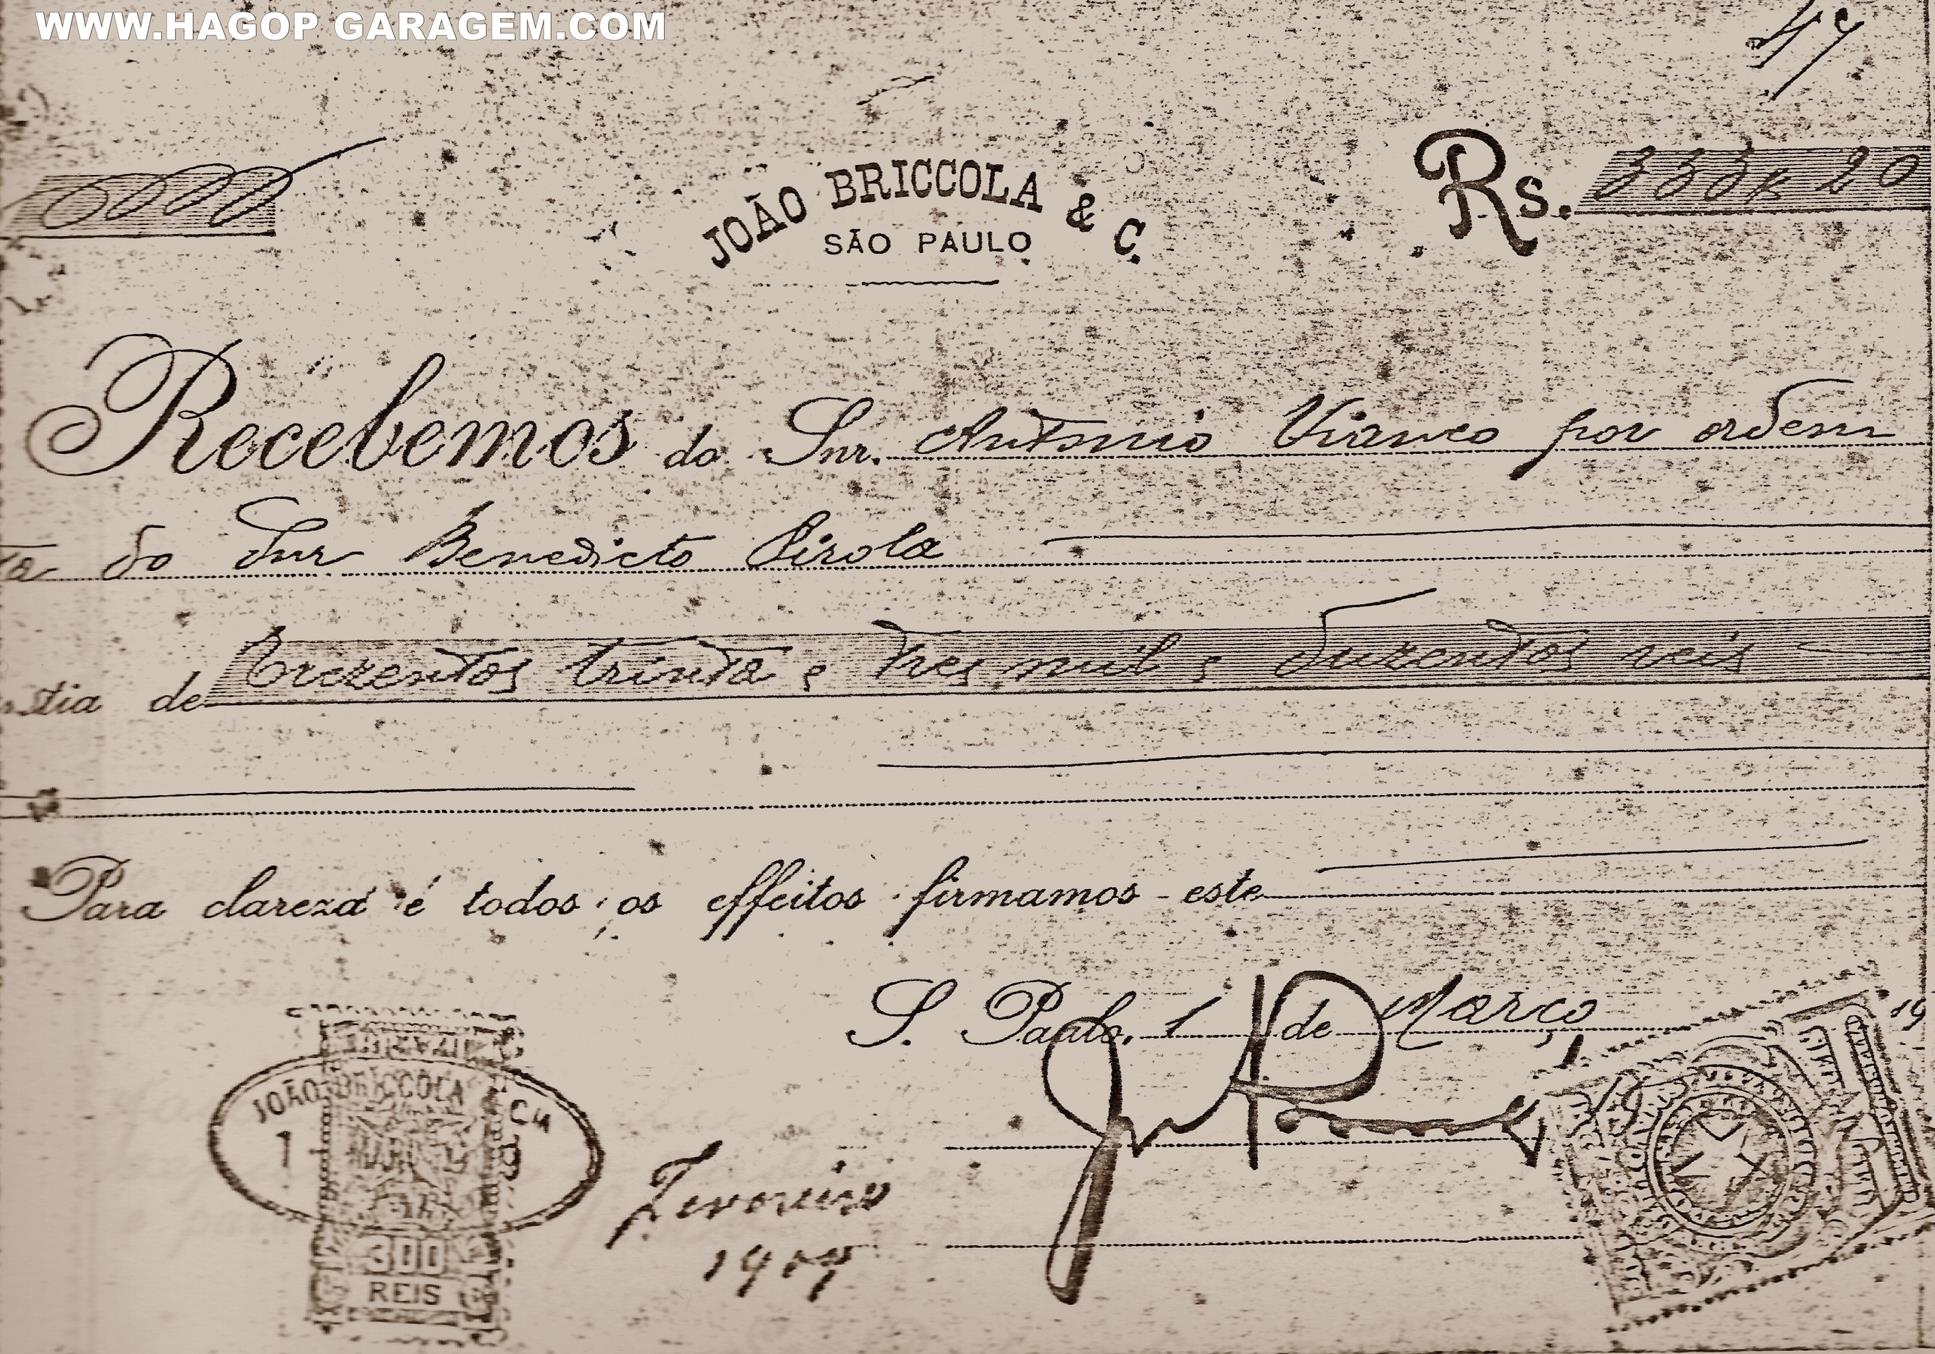 WWW.HAGOP GARAGEM.COM
47
JOÃO BRICCOLA & C.
SÃO PAULO
Rs. 333$ 20
Recebemos do Snr. Antonio Vianco por ordem
do Snr Benedicto Pirola
de Trezentos trinta e tres mil e duzentos reis
Para clareza é todos os effeitos firmamos este
S. Paulo, 1 de Março 19
JOÃO BRICCOLA
300
REIS
Fevereiro
1907